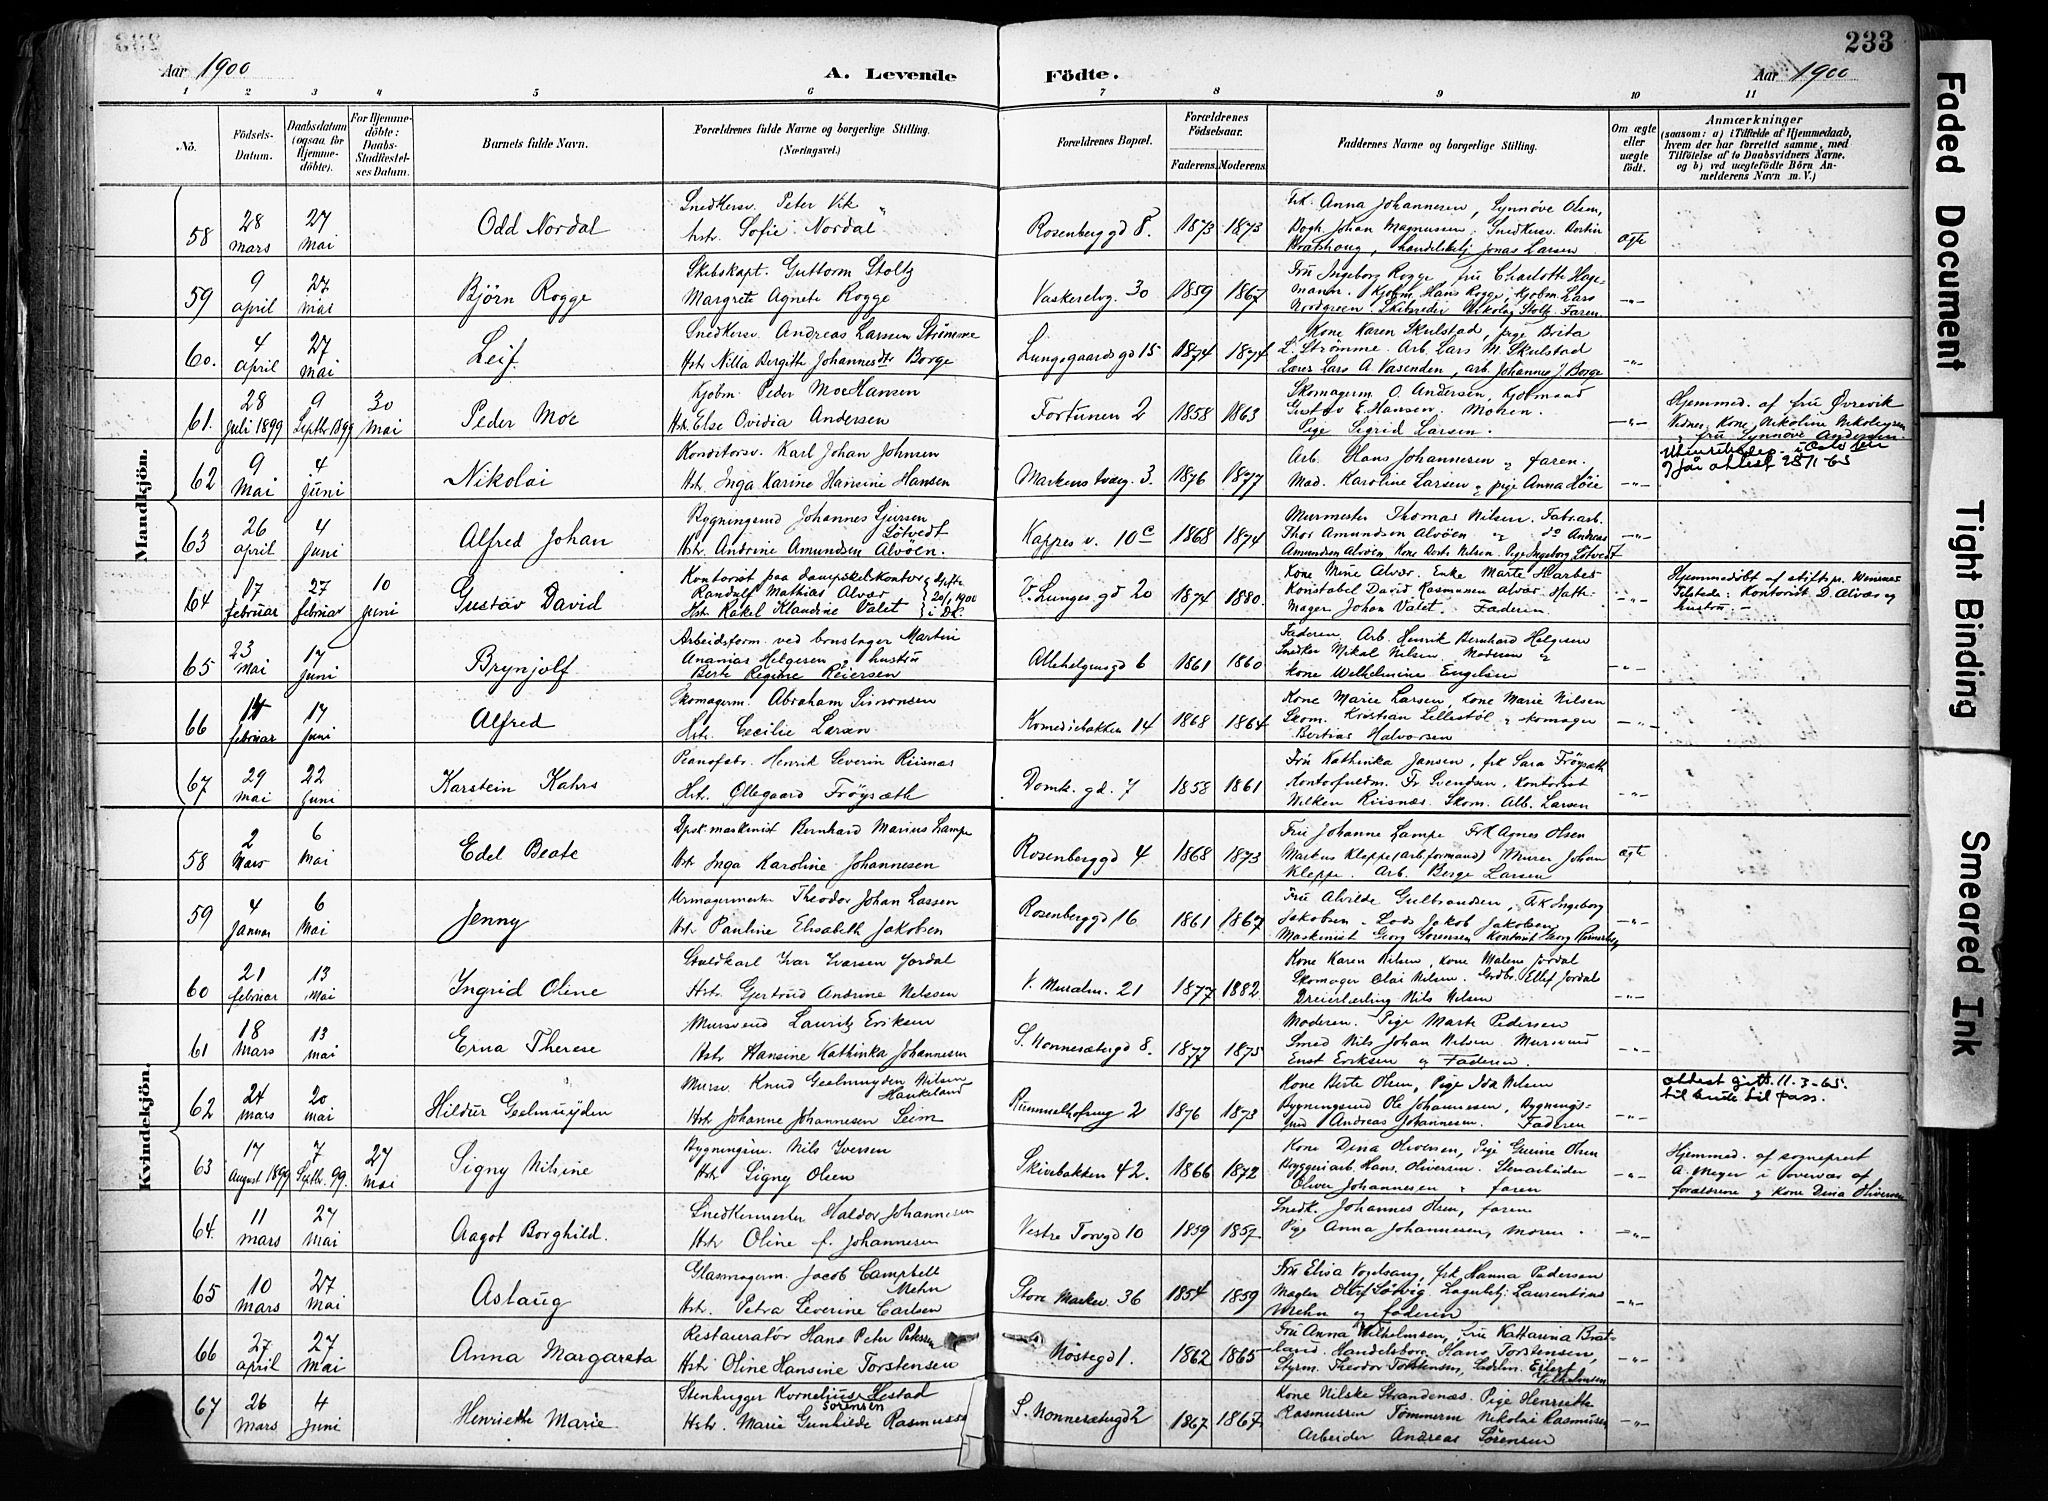 Aar 1900
A. Levende
Födte.
Aar 1900
233
1 2 3 4 5 6 7 8 9 10 11
No.
Födsels-Datum.
Daabsdatum (ogsaa for Hjemmedöbte).
For Hjemmedöbte: Daabs-Stadfæstelses Datum.
Barnets fulde Navn.
Forældrenes fulde Navne og borgerlige Stilling. (Næringsvei.)
Forældrenes Bopæl.
Forældrenes Födselsaar.
Faderens. Moderens.
Faddernes Navne og borgerlige Stilling.
Om ægte eller uægte födt.
Anmærkninger
(saasom: a) i Tilfælde af Hjemmedaab, hvem der har forrettet samme, med Tilföielse af to Daabsvidners Navne. og b) ved uægtefödte Börn Anmelderens Navn m. V.)
Mandkjön.
58 28 mars 27 mai Odd Nordal
Snedkersv. Peter Vik
Hstr. Sofie Nordal
Rosenberggd 8. 1873 1873
Frk. Anna Johannesen, Synnöve Olsen,
Bogh. Johan Magnussen, Snedkersv.
handelsbetj Jonas Larsen
ægte
59 9 april 27 mai Björn Rogge
Skibskapt. Guttorm Stoltz
Margrete Agnete Rogge
Vaskerelvg. 30 1859 1867
Fru Ingeborg Rogge, fru Charlotte Hage-
mann. Kjöbm. Hans Rogge, Kjöbm. Lars
Nordgreen. Skibsreder Nikolay Stoltz. Faren
-"-
60. 4 april 27 mai Leif.
Snedkersv. Andreas Larsen Strömme
Hstr. Nilla Bergitte Johannesdtr Borge
Lungegaardsgd 15 1874 1874
Kone Karen Skulstad, pige Brita
L. Strömme. Arb. Lars M. Skulstad
Lærer Lars A. Vasenden, arb. Johannes J. Borge
-"-
61. 28 juli 1899 9 Septbr 1899 30 mai Peder Moe
Kjöbm. Peder Moe Hansen
Hstr. Else Ovidia Andersen
Fortunen 2 1858 1863
Skomagerm. O. Andersen, Kjöbmand
Gustav E. Hansen. Moren.
Pige Sigrid Larsen.
-"-
Hjemmed. af fru Övrevik
Vidner Kone Nikoline Nikolaysen
og fru Synnöve Andersen.
attest 25/1-65
62 9 Mai 4 Juni Nikolai
Konditorsv. Karl Johan Johnsen
Hstr. Inga Karine Hansine Hansen
Markens tvæg. 3. 1876 1877
Arb. Hans Johannesen, faren.
Mad. Karoline Larsen, pige Anna Höie
-"-
63 26 april 4 Juni Alfred Johan
Bygningssnd Johannes Sjursen
Lötvedt
Hstr. Andrine Amundsen Alvöen.
Kappes v. 10c 1868 1874
Murmester Thomas Nilsen. Fabrarb.
Thor Amundsen Alvöen, do Andreas
Amundsen Alvöen Kone Berte Nilsen. Pige Ingeborg Lötvedt
-"-
64 17 februar 27 februar 10 Juni Gustav David
Kontorist paa dampskibskontor
Randulf Mathias Alvær
Hstr. Rakel Klandine Valet
gifte 20/1 1900 i DK.
V. Lunges. gd 20 1874 1880.
Kone Mine Alvær. Enke Marte
Konstabel David Rasmussen Alvær
Johan Valet. Faderen.
-"-
Hjemmedöbt af stiftspr.
Tilstede: Kontorist D. Alvær og
hustru.
65 23 Mai 17 Juni Brynjolf
Arbeidsform. ved brustager Martin
Ananias Helgesen, hustru
Berte Regine Reiersen
Allehelgensgd 6 1861 1860
Faderen, Arb. Henrik Bernhard Helgesen
Snedker Mikal Nilsen, Moderen,
Kone Wilhelmine Engelsen
-"-
66 14 februar 17 Juni Alfred
Skomagerm. Abraham Simonsen
Hstr. Cecilie Larsen
Komediebakken 14 1868 1864
Kone Marie Larsen, Kone Marie Nilsen
Skom. Kristian Lillestöl, skomager
Bertias Halvorsen
-"-
67 29 Mai 22 Juni Karstein Kahrs
Pianofabr. Henrik Severin Riisnæs
Hstr. Ollegaard Fröysæth
Domk. gd. 7 1858 1861
Fru Kathinka Jansen, frk Sara Fröysæth
Kontorfuldm. Fr. Svendsen, Kontorist
Wilken Riisnæs. Skom. Alb. Larsen
-"-
Kvindekjön.
58 2 Mars 6 Mai Edel Beate
Dpsk. maskinist Bernhard Marius Lampe
Hstr Inga Karoline Johannesen
Rosenberggd 4 1868 1873
Fru Johanne Lampe Frk Agnes Olsen
Markus Kleppe (arb.formand) Murer Johan
Kleppe. Arb. Berge Larsen
ægte
59 4 januar 6 Mai Jenny
Urmagermester Theodor Johan Lassen
Hstr Pauline Elisabeth Jakobsen
Rosenberggd 16 1861 1867
Fru Alvilde Gulbrandsen, frk Ingeborg
Jakobsen. Lods Jakob Jakobsen
Maskinist Georg Sørensen Kontorist Georg
-"-
60 21 februar 13 Mai Ingrid Oline
Staldkarl Ivar Ivarsen Jordal
Hstr. Gjertrud Andrine Nilssen
V. Muralm. 21 1877 1882
Kone Karen Nilsen, Kone Malene Jordal
Skomager Olai Nilsen. Grdbr. Ellef Jordal
Dreierlærling Nils Nilsen
-"-
61 18 Mars 13 mai Erna Therese
Mursvend Lauritz Eriksen
Hstr Hansine Kathinka Johannesen
S. Nonnesætergd 8. 1877 1875
Moderen. Pige Marte Pedersen
Smed Nils Johan Nilsen. Mursvend
Ernst Eriksen og Faderen
-"-
62 24 mars 20 mai Hildur Geelmuyden
Mursv. Knud Geelmuyden Nilsen
Haukeland
Hstr Johanne Johannesen Seim
Rummelhofsvg 2 1876 1873
Kone Berte Olsen, Pige Ida Nilsen
Bygningssnd Ole Johannesen, Bygnings-
snd Andreas Johannesen. Faderen
-"-
attest gitt. 11-3-65.
til bruk til pass.
63 17 August 1899 7 Septbr. 99. 27 Mai Signy Nilsine
Bygningssn. Nils Iversen
Hstr Signy Olsen
Skivebakken 42. 1866 1872
Kone Dina Oliversen, Pige Gurine Olsen
Bryggeriarb. Hans Oliversen. Stenarbeider
Oliver Johannesen, faren
-"-
Hjemmed. af sogneprest
A. Meyer i overvær af
forældrene og kone Dina Oliversen
64. 11 mars 27 Mai Aagot Borghild.
Snedkermester Haldor Johannesen
Hstr Oline f. Johannesen
Vestre Torvgd 10 1859 1857
Snedk. Johannes Olsen, faren
Pige Anna Johannesen, moren.
-"-
65 10 Mars 27 Mai Aslaug
Glasmagerm. Jacob Campbell
Mehn
Hstr. Petra Severine Carlsen
Store Markev. 36 1854 1859
Fru Elisa Vogelsang, frk Hanna Pedersen
Magler Oluf Lödvig. Lagerbetj. Laurentius
Mehn og faderen
-"-
66 27 april 27 Mai Anna Margareta
Restauratör Hans Peter Petersen
Hstr Oline Hansine Torstensen
Nöstegd 1. 1862 1865
Fru Anna Wilhelmsen, fru Kattarina Brat-
land. Handelsborg. Hans Torstensen,
Styrm. Theodor Torstensen, Eilert
Wilhelmsen
-"-
67 26 Mars 4 Juni Henriette Marie
Stenhugger Kornelius Hestad
Sörensen
Hstr. Marie Gunhilde Rasmussen
S. Nonnesætergd 2 1867 1867
Kone Nilske Strandenæs. Pige Henriette
Rasmussen Tömmerm Nikolai Rasmussen
Arbeider Andreas Sörensen
-"-
Faded Document
Tight Binding
Smeared Ink